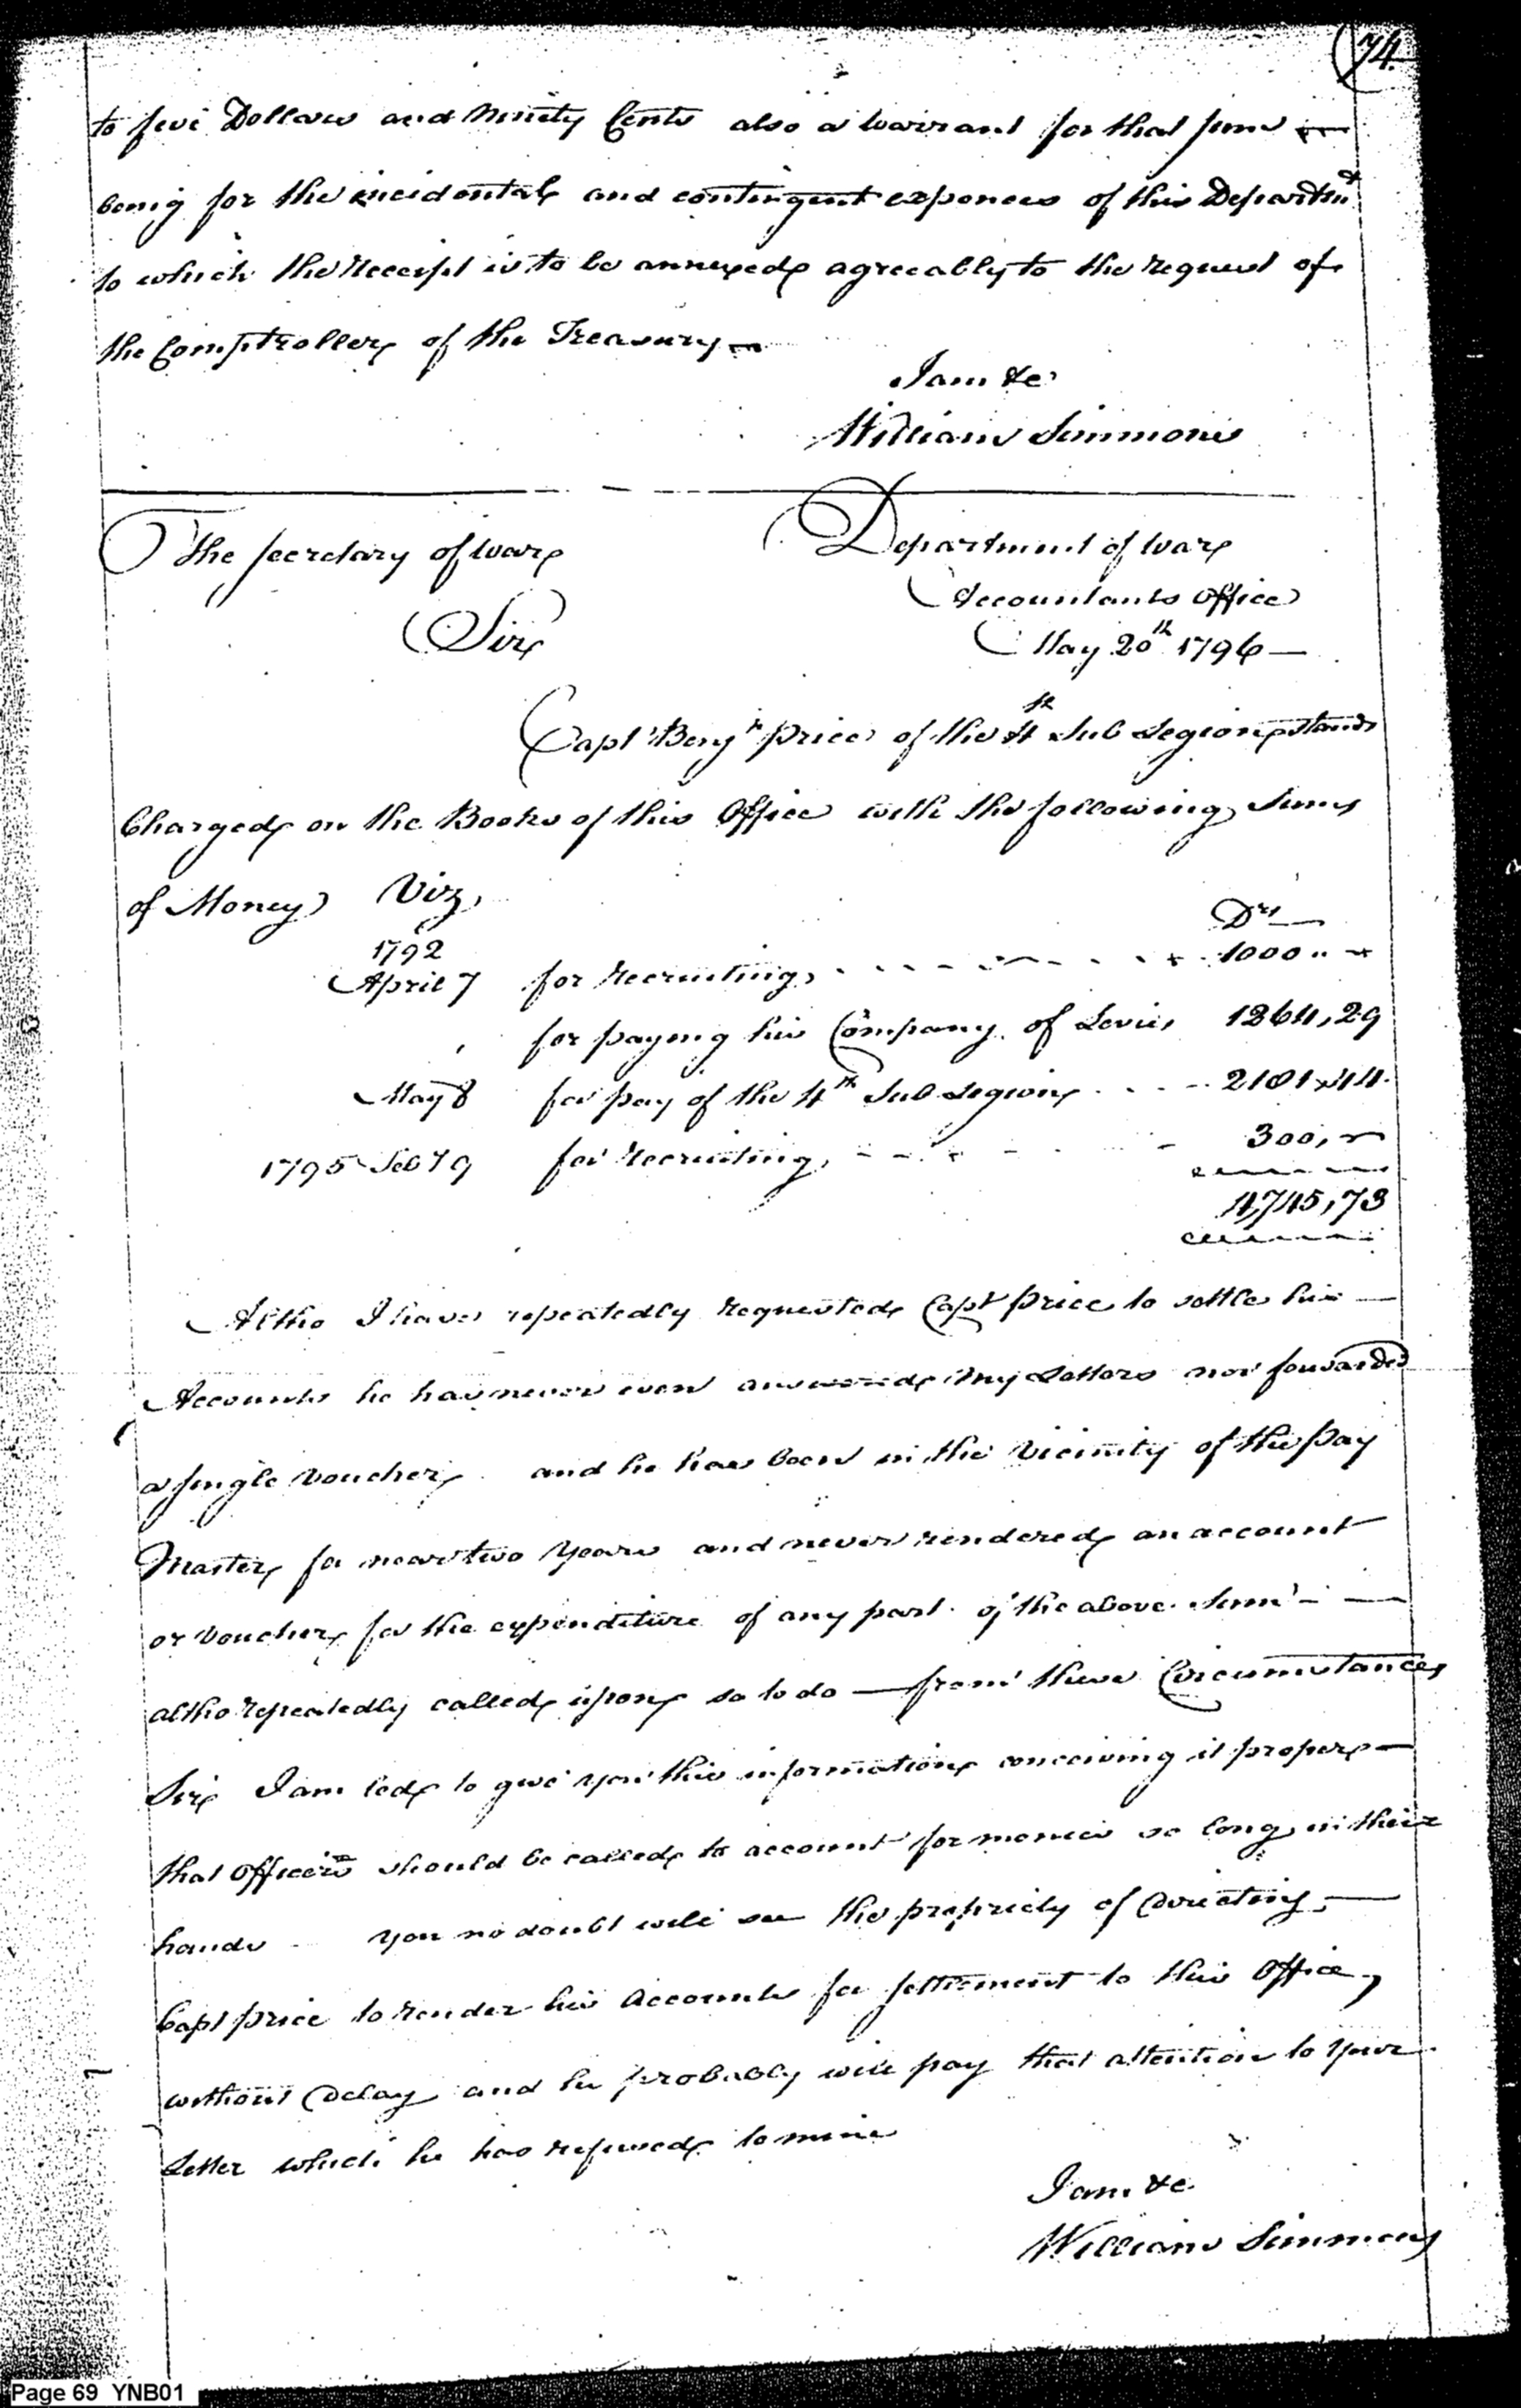 74.
to five Dollars and Ninety Cents also a warrant for that sum
being for the incidental and contingent expences of this Departmt
to which the receipt is to be annexed agreeably to the request of
the Comptroller of the Treasury
I am &c
William Simmons
The Secretary of War
Department of War
Accountants Office
Sir
May 20th 1796
Capt Benjn Price of the 4th Sub Legion stands
Charged on the Books of this Office with the following Sums
of Money Viz,
Drs
1792
April 7 for recruiting, 1000 "
for paying his Company of Levies 1264,29
May 8 for pay of the 4th Sub Legion 2181,44
1795 Feby 9 for recruiting, 300,
4,745,73
Altho I have repeatedly requested Capt Price to settle his
Accounts he has never even answered my Letters nor forwarded
a single voucher and he has been in the Vicinity of the Pay
Master for near two Years and never rendered an account
or voucher for the expenditure of any part of the above Sum
altho repeatedly called upon so to do — from these Circumstances
Sir I am led to give you this information conceiving it proper
that Officers should be called to account for monies so long in their
hands you no doubt will see the propriety of directing
Capt Price to render his Accounts for settlement to this Office,
without delay and he probably will pay that attention to your
Letter which he has refused to mine
I am &c.
William Simmons
Page 69 YNB01